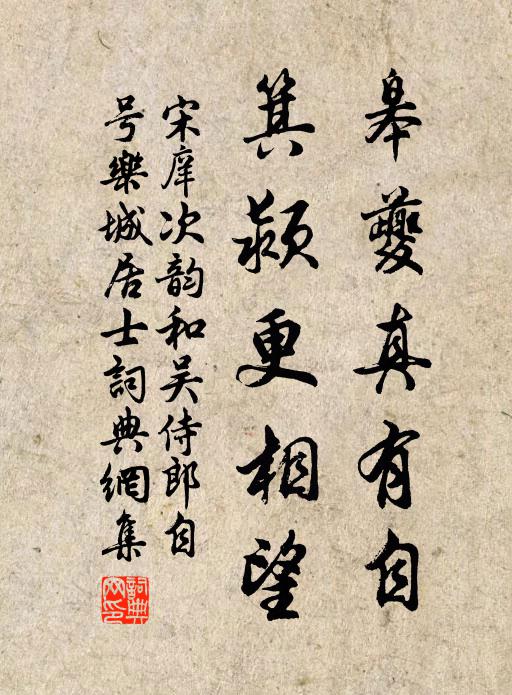 皋夔真有自
箕颍更相望
宋庠次韵和吴侍郎自
号樂城居士詞典網集
詞典